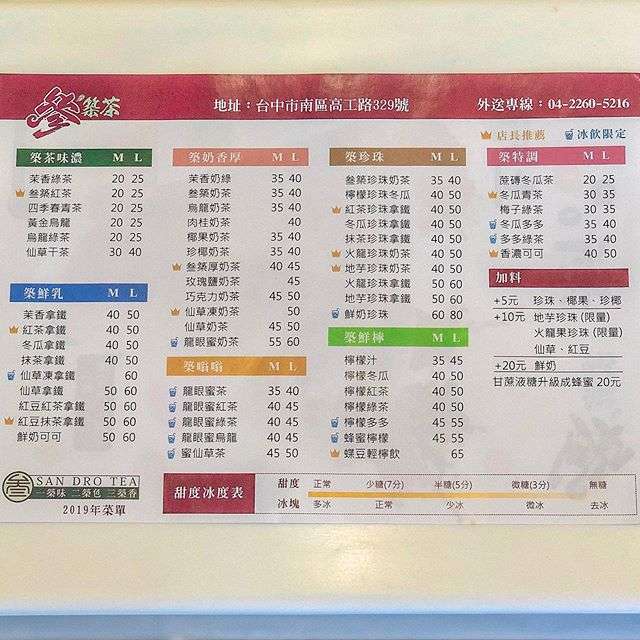 叁築茶 地址：台中市南區高工路329號 外送專線：04-2260-5216
店長推薦 冰飲限定
築茶味濃 M L
茉香綠茶 20 25
叁築紅茶 20 25
四季春青茶 20 25
黃金烏龍 20 25
烏龍綠茶 20 25
仙草干茶 30 40
築鮮乳 M L
茉香拿鐵 40 50
紅茶拿鐵 40 50
冬瓜拿鐵 40 50
抹茶拿鐵 40 50
仙草凍拿鐵 60
仙草拿鐵 50 60
紅豆紅茶拿鐵 50 60
紅豆抹茶拿鐵 50 60
鮮奶可可 50 60
築奶香厚 M L
茉香奶綠 35 40
叁築奶茶 35 40
烏龍奶茶 35 40
肉桂奶茶 40
椰果奶茶 35 40
珍椰奶茶 35 40
叁築厚奶茶 40 45
玫瑰鹽奶茶 45
巧克力奶茶 45 50
仙草凍奶茶 50
仙草奶茶 45 50
龍眼蜜奶茶 55 60
築嗡嗡 M L
龍眼蜜茶 35 40
龍眼蜜紅茶 40 45
龍眼蜜綠茶 40 45
龍眼蜜烏龍 40 45
蜜仙草茶 45 50
築珍珠 M L
叁築珍珠奶茶 35 40
檸檬珍珠冬瓜 40 50
紅茶珍珠拿鐵 40 50
冬瓜珍珠拿鐵 40 50
抹茶珍珠拿鐵 40 50
火龍珍珠奶茶 40 50
地芋珍珠奶茶 40 50
火龍珍珠拿鐵 50 60
地芋珍珠拿鐵 50 60
鮮奶珍珠 60 80
築鮮檸 M L
檸檬汁 35 45
檸檬冬瓜 40 50
檸檬紅茶 40 50
檸檬綠茶 40 50
檸檬多多 45 55
蜂蜜檸檬 45 55
蝶豆輕檸飲 65
築特調 M L
蔗磚冬瓜茶 20 25
冬瓜青茶 30 35
梅子綠茶 30 35
冬瓜多多 35 40
多多綠茶 35 40
香濃可可 40 50
加料
+5元 珍珠、椰果、珍椰
+10元 地芋珍珠 (限量)
火龍果珍珠 (限量)
仙草、紅豆
+20元 鮮奶
甘蔗液糖升級成蜂蜜 20元
SAN DRO TEA
一築味 二築色 三築香
2019年菜單
甜度冰度表
甜度 正常 少糖(7分) 半糖(5分) 微糖(3分) 無糖
冰塊 多冰 正常 少冰 微冰 去冰